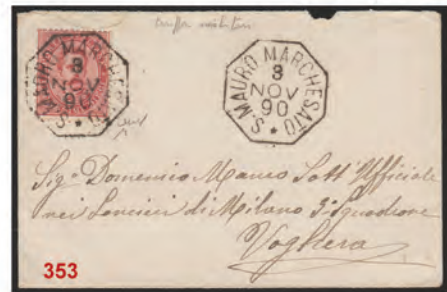 S. MAURO MARCHESATO
3
NOV
90
S. MAURO MARCHESATO
3
NOV
90
Sig. Domenico Mauro Sott'Ufficiale
nei Lancieri di Milano 3° Squadrone
Voghera
353